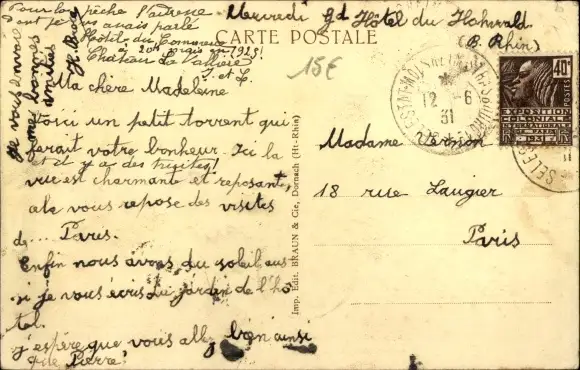 Pour la pêche l'adresse
dont je vous avais parlé
Hôtel du Commerce
Château de Vallière
J. et L.
Mercredi Gd Hôtel du Hohwald
(B. Rhin)
CARTE POSTALE
15€
12 -6
31
40c
POSTES
EXPOSITION
COLONIALE
INTERNATIONALE
PARIS
Je vous
Ma chère Madeleine
Voici un petit torrent qui
ferait votre bonheur. Ici la
et il y a des truites!
vue est charmante et reposante,
cela vous repose des visites
de.... Paris.
Enfin nous avons du soleil aus
si je vous écris du jardin de l'hô
tel.
j'espère que vous allez bien ainsi
que Pierre!
Imp. Edit. BRAUN & Cie, Dornach (Ht-Rhin)
Madame Vernon
18 rue Laugier
Paris